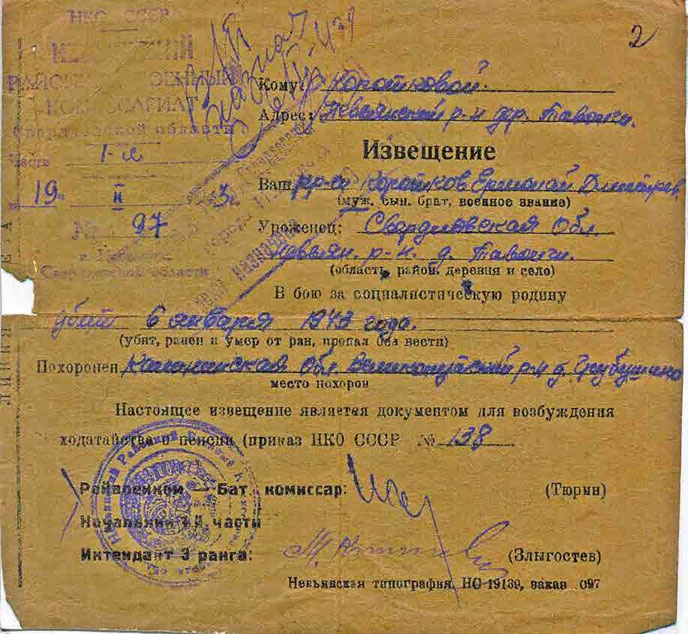 НКО СССР
НЕВЬЯНСКИЙ
РАЙОННЫЙ ВОЕННЫЙ
КОМИССАРИАТ
Свердловской области
Часть 1-я
19 II 3
№ 97
г. Невьянск
Свердловской области
2
Кому: Коротковой
Адрес: Невьянский р-н дер. Таволги.
Извещение
Ваш Коротков Ермолай
(муж, сын, брат, военное звание)
Уроженец: Свердловская Обл.
Невьян. р-н. д. Таволги.
(область, район, деревня и село)
В бою за социалистическую родину
убит 6 января 1943 года.
(убит, ранен и умер от ран, пропал без вести)
Похоронен Калининская Обл. Великолукский р-н д.
место похорон
Настоящее извещение является документом для возбуждения
ходатайства о пенсии (приказ НКО СССР № 138
Райвоенком — Бат. комиссар: (Тюрин)
Начальник 1-й части
Интендант 3 ранга: (Злыгостев)
Невьянская типография, НС-19139, заказ 097
ЛИНИЯ